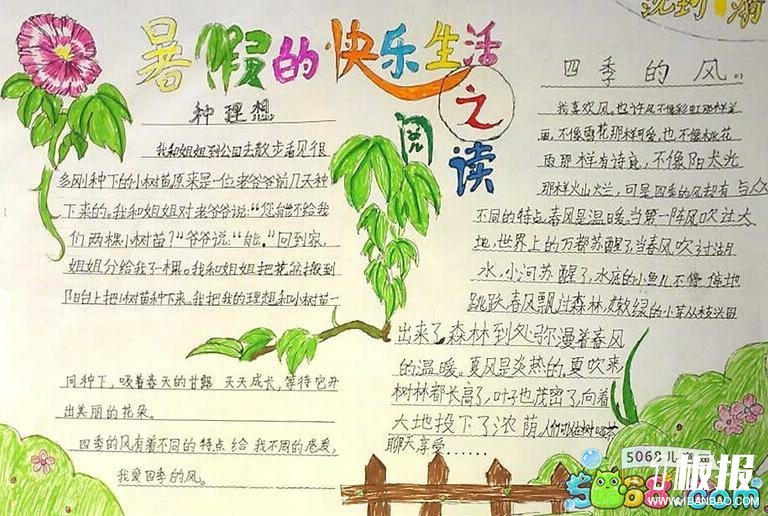 暑假的快乐生活
之
阅
读
种理想
我和姐姐到公园去散步看见很
多刚种下的小树苗原来是一位老爷爷前几天种
下来的。我和姐姐对老爷爷说:“您能不给我
们两棵小树苗?”爷爷说:“能。”回到家,
姐姐分给我了一棵。我和姐姐把花盆搬到
阳台上把小树苗种下来。我把我的理想和小树苗一
同种下,吸着春天的甘露 天天成长,等待它开
出美丽的花朵。
四季的风有着不同的特点给我不同的
我爱四季的风。
四季的风
我喜欢风。也许风不像彩虹那样美
丽,不像雪花那样可爱,也不像桃花
雨那样有诗意,不像阳光
那样火山火兰,可是四季的风却有与众
不同的特点。春风是温暖,当第一阵风吹过大
地,世界上的万都苏醒了,当春风吹过湖
水,小河苏醒了,水底的小鱼儿不停地
跳跃。春风飘过森林,嫩绿的小芽从枝
出来了森林到处弥漫着春风
的温暖。夏风是炎热的,夏吹来
树林都长高了,叶子也茂密了,向着
大地投下了浓荫,人们可以在树喝茶
聊天享受……
5068儿
板报
WWW.1BANBAO.COM
5068.com